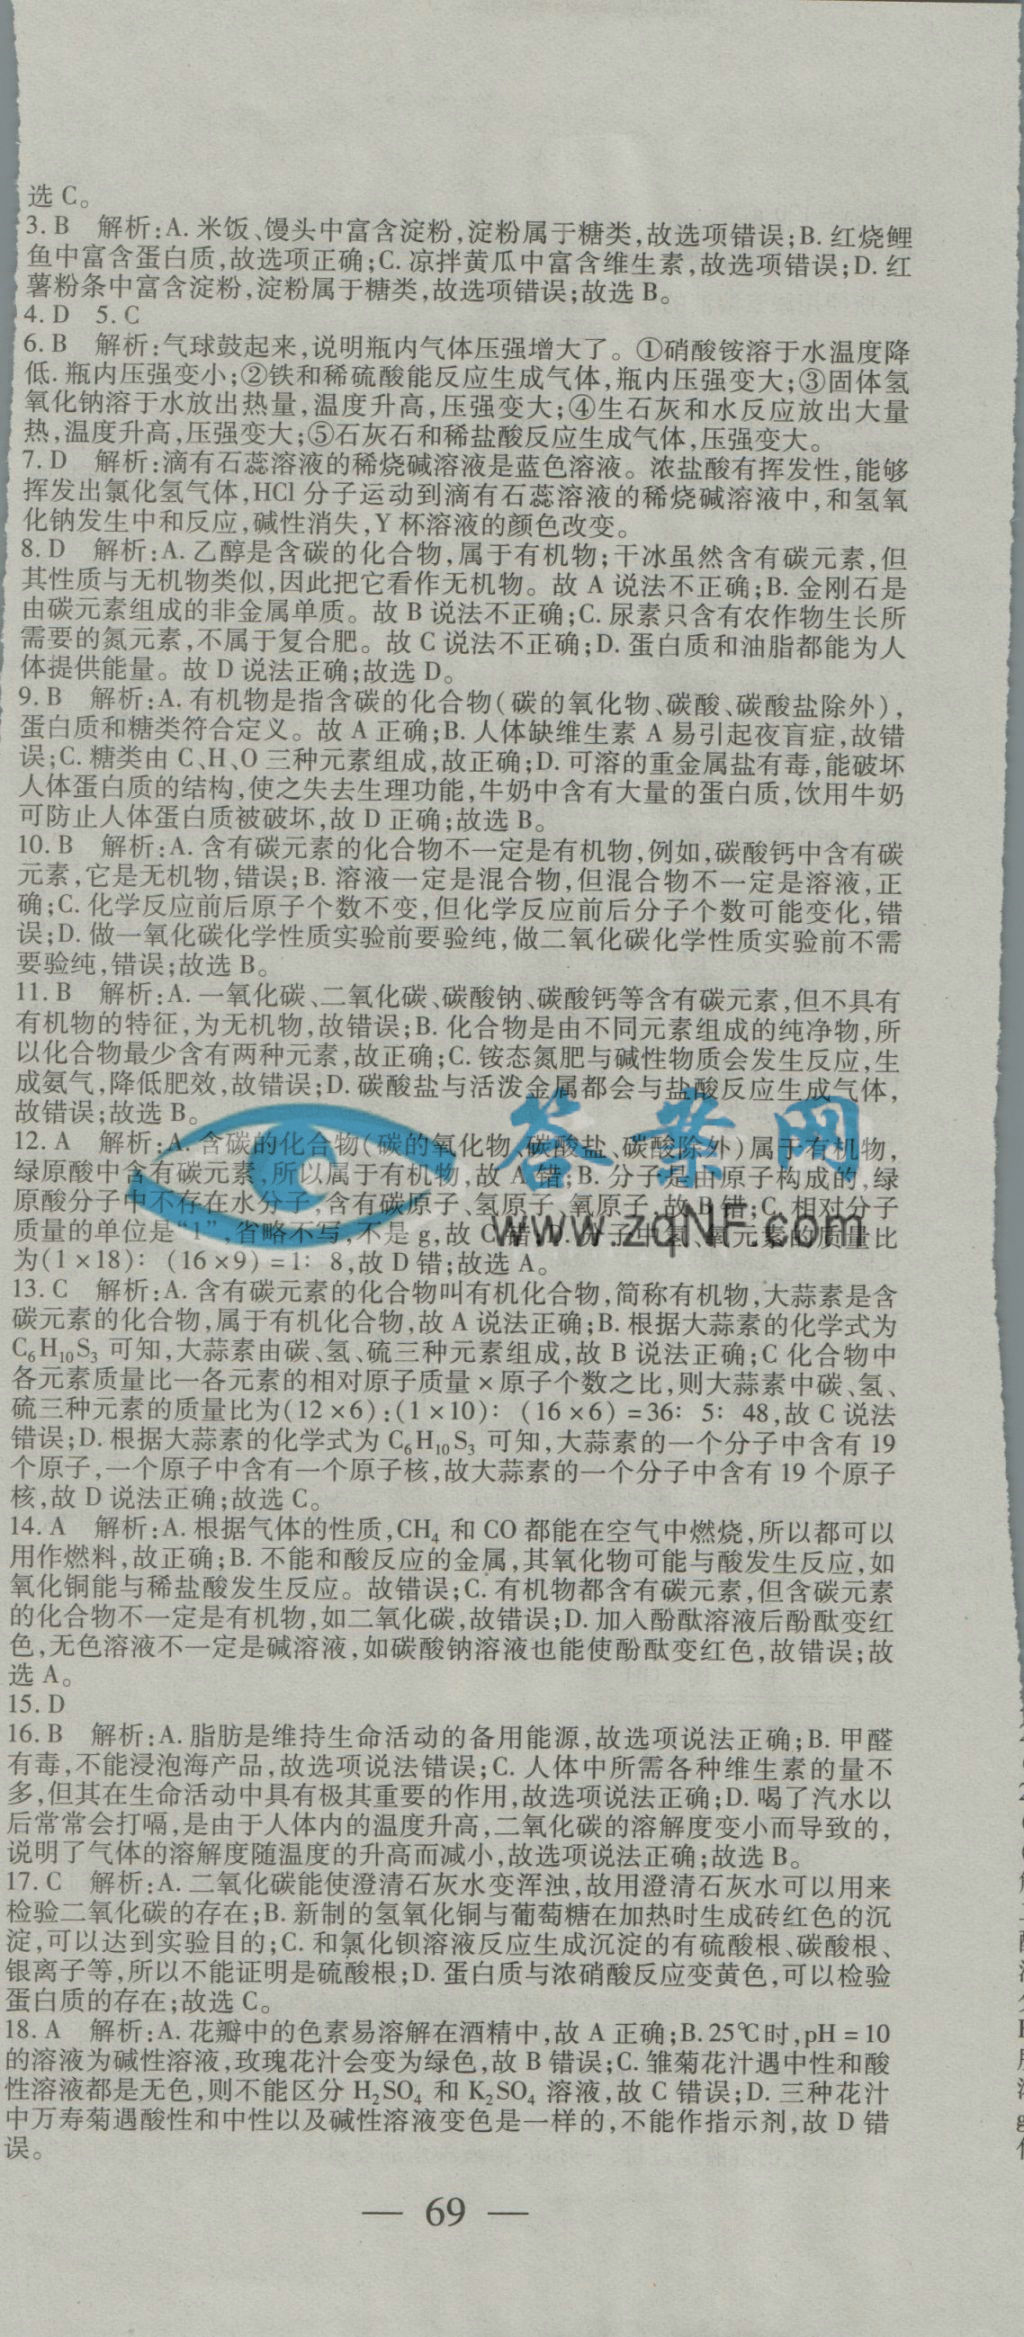 选 C。
3. B　解析:A. 米饭、馒头中富含淀粉,淀粉属于糖类,故选项错误;B. 红烧鲤
鱼中富含蛋白质,故选项正确;C. 凉拌黄瓜中富含维生素,故选项错误;D. 红
薯粉条中富含淀粉,淀粉属于糖类,故选项错误;故选 B。
4. D　5. C
6. B　解析:气球鼓起来,说明瓶内气体压强增大了。①硝酸铵溶于水温度降
低. 瓶内压强变小;②铁和稀硫酸能反应生成气体,瓶内压强变大;③固体氢
氧化钠溶于水放出热量,温度升高,压强变大;④生石灰和水反应放出大量
热,温度升高,压强变大;⑤石灰石和稀盐酸反应生成气体,压强变大。
7. D　解析:滴有石蕊溶液的稀烧碱溶液是蓝色溶液。浓盐酸有挥发性,能够
挥发出氯化氢气体,HCl 分子运动到滴有石蕊溶液的稀烧碱溶液中,和氢氧
化钠发生中和反应,碱性消失,Y 杯溶液的颜色改变。
8. D　解析:A. 乙醇是含碳的化合物,属于有机物;干冰虽然含有碳元素,但
其性质与无机物类似,因此把它看作无机物。故 A 说法不正确;B. 金刚石是
由碳元素组成的非金属单质。故 B 说法不正确;C. 尿素只含有农作物生长所
需要的氮元素,不属于复合肥。故 C 说法不正确;D. 蛋白质和油脂都能为人
体提供能量。故 D 说法正确;故选 D。
9. B　解析:A. 有机物是指含碳的化合物(碳的氧化物、碳酸、碳酸盐除外),
蛋白质和糖类符合定义。故 A 正确;B. 人体缺维生素 A 易引起夜盲症,故错
误;C. 糖类由 C、H、O 三种元素组成,故正确;D. 可溶的重金属盐有毒,能破坏
人体蛋白质的结构,使之失去生理功能,牛奶中含有大量的蛋白质,饮用牛奶
可防止人体蛋白质被破坏,故 D 正确;故选 B。
10. B　解析:A. 含有碳元素的化合物不一定是有机物,例如,碳酸钙中含有碳
元素,它是无机物,错误;B. 溶液一定是混合物,但混合物不一定是溶液,正
确;C. 化学反应前后原子个数不变,但化学反应前后分子个数可能变化,错
误;D. 做一氧化碳化学性质实验前要验纯,做二氧化碳化学性质实验前不需
要验纯,错误;故选 B。
11. B　解析:A. 一氧化碳、二氧化碳、碳酸钠、碳酸钙等含有碳元素,但不具有
有机物的特征,为无机物,故错误;B. 化合物是由不同元素组成的纯净物,所
以化合物最少含有两种元素,故正确;C. 铵态氮肥与碱性物质会发生反应,生
成氨气,降低肥效,故错误;D. 碳酸盐与活泼金属都会与盐酸反应生成气体,
故错误;故选 B。
12. A　解析:A. 含碳的化合物(碳的氧化物、碳酸盐、碳酸除外)属于有机物,
绿原酸中含有碳元素,所以属于有机物,故 A 错;B. 分子是由原子构成的,绿
原酸分子中不存在水分子,含有碳原子、氢原子、氧原子,故 B 错;C. 相对分子
质量的单位是“1”,省略不写,不是 g,故 C 错;D. 分子中氢、氧元素的质量比
为(1×18)∶(16×9)=1∶8,故 D 错;故选 A。
13. C　解析:A. 含有碳元素的化合物叫有机化合物,简称有机物,大蒜素是含
碳元素的化合物,属于有机化合物,故 A 说法正确;B. 根据大蒜素的化学式为
C₆H₁₀S₃ 可知,大蒜素由碳、氢、硫三种元素组成,故 B 说法正确;C 化合物中
各元素质量比一各元素的相对原子质量×原子个数之比,则大蒜素中碳、氢、
硫三种元素的质量比为(12×6):(1×10)∶(16×6)=36∶5∶48,故 C 说法
错误;D. 根据大蒜素的化学式为 C₆H₁₀S₃ 可知,大蒜素的一个分子中含有 19
个原子,一个原子中含有一个原子核,故大蒜素的一个分子中含有 19 个原子
核,故 D 说法正确;故选 C。
14. A　解析:A. 根据气体的性质,CH₄ 和 CO 都能在空气中燃烧,所以都可以
用作燃料,故正确;B. 不能和酸反应的金属,其氧化物可能与酸发生反应,如
氧化铜能与稀盐酸发生反应。故错误;C. 有机物都含有碳元素,但含碳元素
的化合物不一定是有机物,如二氧化碳,故错误;D. 加入酚酞溶液后酚酞变红
色,无色溶液不一定是碱溶液,如碳酸钠溶液也能使酚酞变红色,故错误;故
选 A。
15. D
16. B　解析:A. 脂肪是维持生命活动的备用能源,故选项说法正确;B. 甲醛
有毒,不能浸泡海产品,故选项说法错误;C. 人体中所需各种维生素的量不
多,但其在生命活动中具有极其重要的作用,故选项说法正确;D. 喝了汽水以
后常常会打嗝,是由于人体内的温度升高,二氧化碳的溶解度变小而导致的,
说明了气体的溶解度随温度的升高而减小,故选项说法正确;故选 B。
17. C　解析:A. 二氧化碳能使澄清石灰水变浑浊,故用澄清石灰水可以用来
检验二氧化碳的存在;B. 新制的氢氧化铜与葡萄糖在加热时生成砖红色的沉
淀,可以达到实验目的;C. 和氯化钡溶液反应生成沉淀的有硫酸根、碳酸根、
银离子等,所以不能证明是硫酸根;D. 蛋白质与浓硝酸反应变黄色,可以检验
蛋白质的存在;故选 C。
18. A　解析:A. 花瓣中的色素易溶解在酒精中,故 A 正确;B. 25℃时,pH=10
的溶液为碱性溶液,玫瑰花汁会变为绿色,故 B 错误;C. 雏菊花汁遇中性和酸
性溶液都是无色,则不能区分 H₂SO₄ 和 K₂SO₄ 溶液,故 C 错误;D. 三种花汁
中万寿菊遇酸性和中性以及碱性溶液变色是一样的,不能作指示剂,故 D 错
误。
— 69 —
答案网
www.zqNF.com